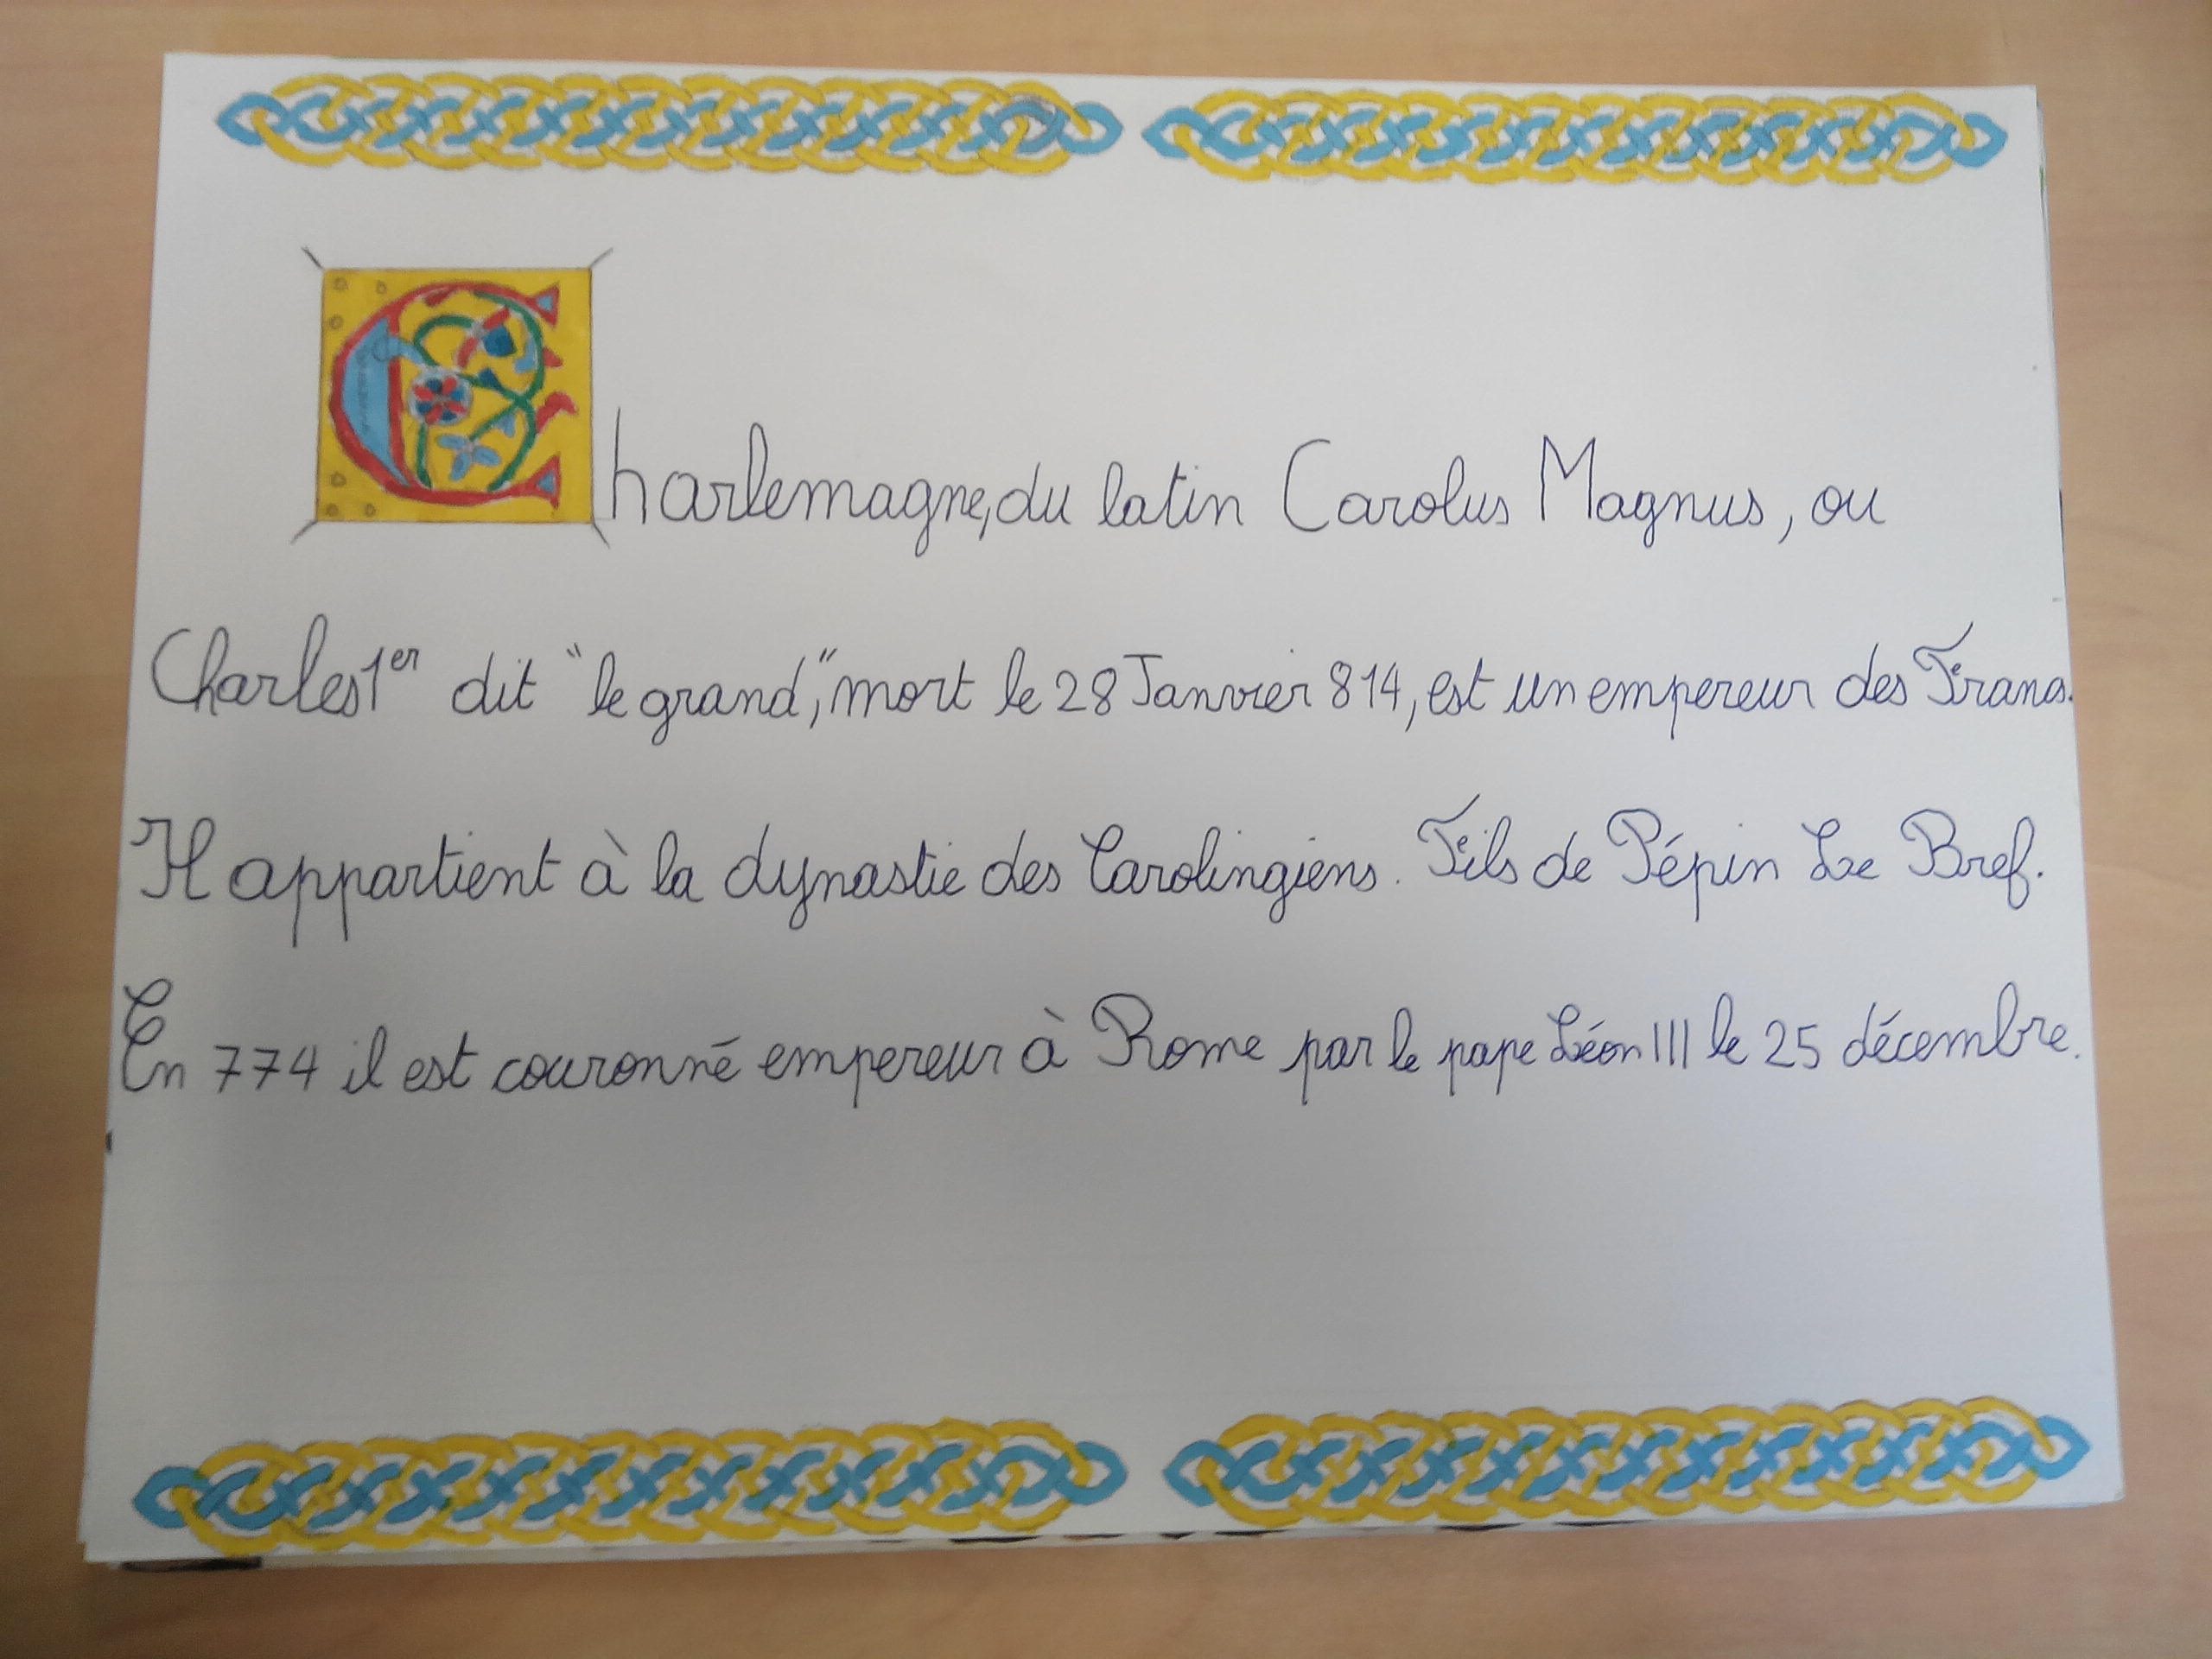 Charlemagne, du latin Carolus Magnus, ou
Charles 1er dit "le grand", mort le 28 Janvier 814, est un empereur des Francs.
Il appartient à la dynastie des Carolingiens. Fils de Pépin Le Bref.
En 774 il est couronné empereur à Rome par le pape Léon III le 25 décembre.